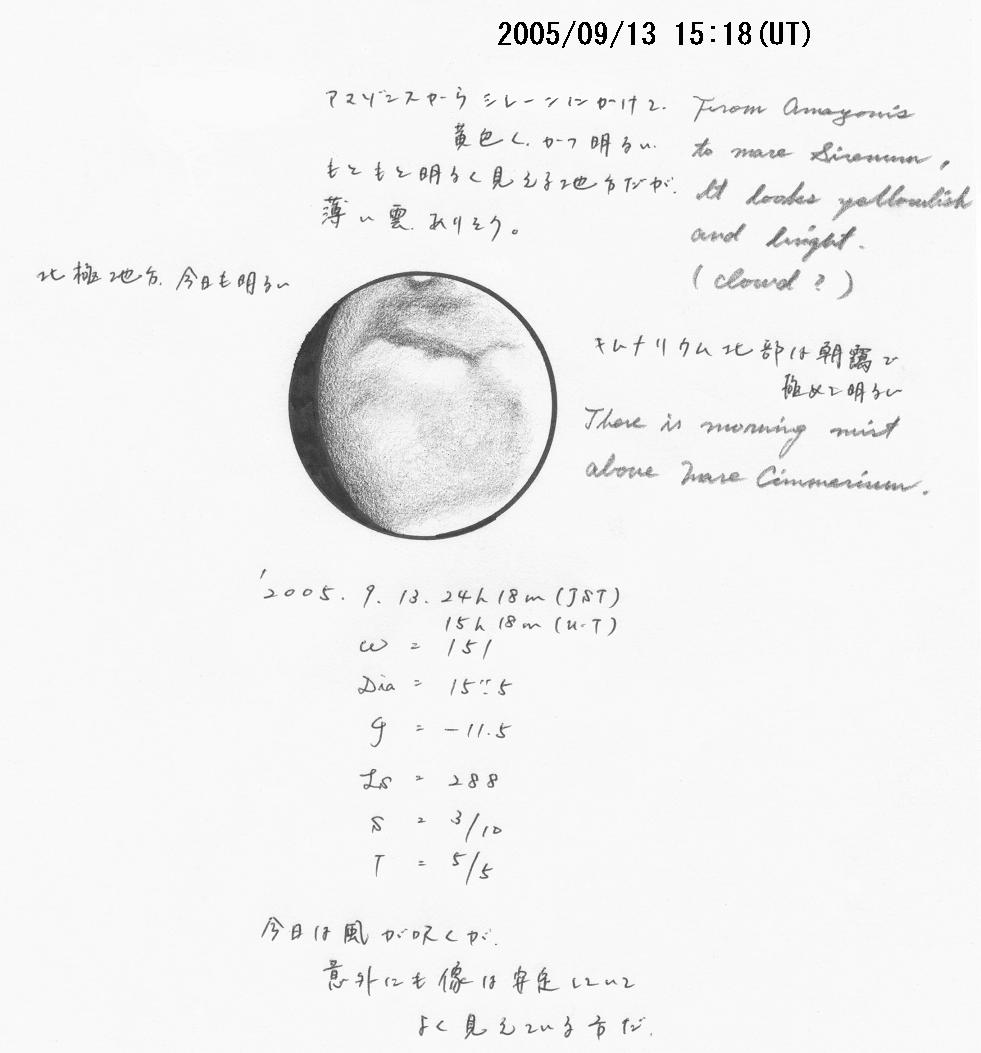 2005/09/13 15:18(UT)
アマゾニスからシレーンにかけて、
黄色く、かつ明るい
もともと明るく見える地方だが、
薄い雲ありそう。
From Amazonis
to mare Sirenum,
It looks yellowlish
and bright.
(cloud ?)
北極地方、今日も明るい
キムナリウム北部は朝靄で
極めて明るい
There is morning mist
above mare Cimmerium.
'2005. 9. 13. 24h 18m (JST)
15h 18m (U.T)
ω = 151
Dia = 15".5
φ = -11.5
Ls = 288
S = 3/10
T = 5/5
今日は風が吹くが、
意外にも像は安定していて
よく見えている方だ。